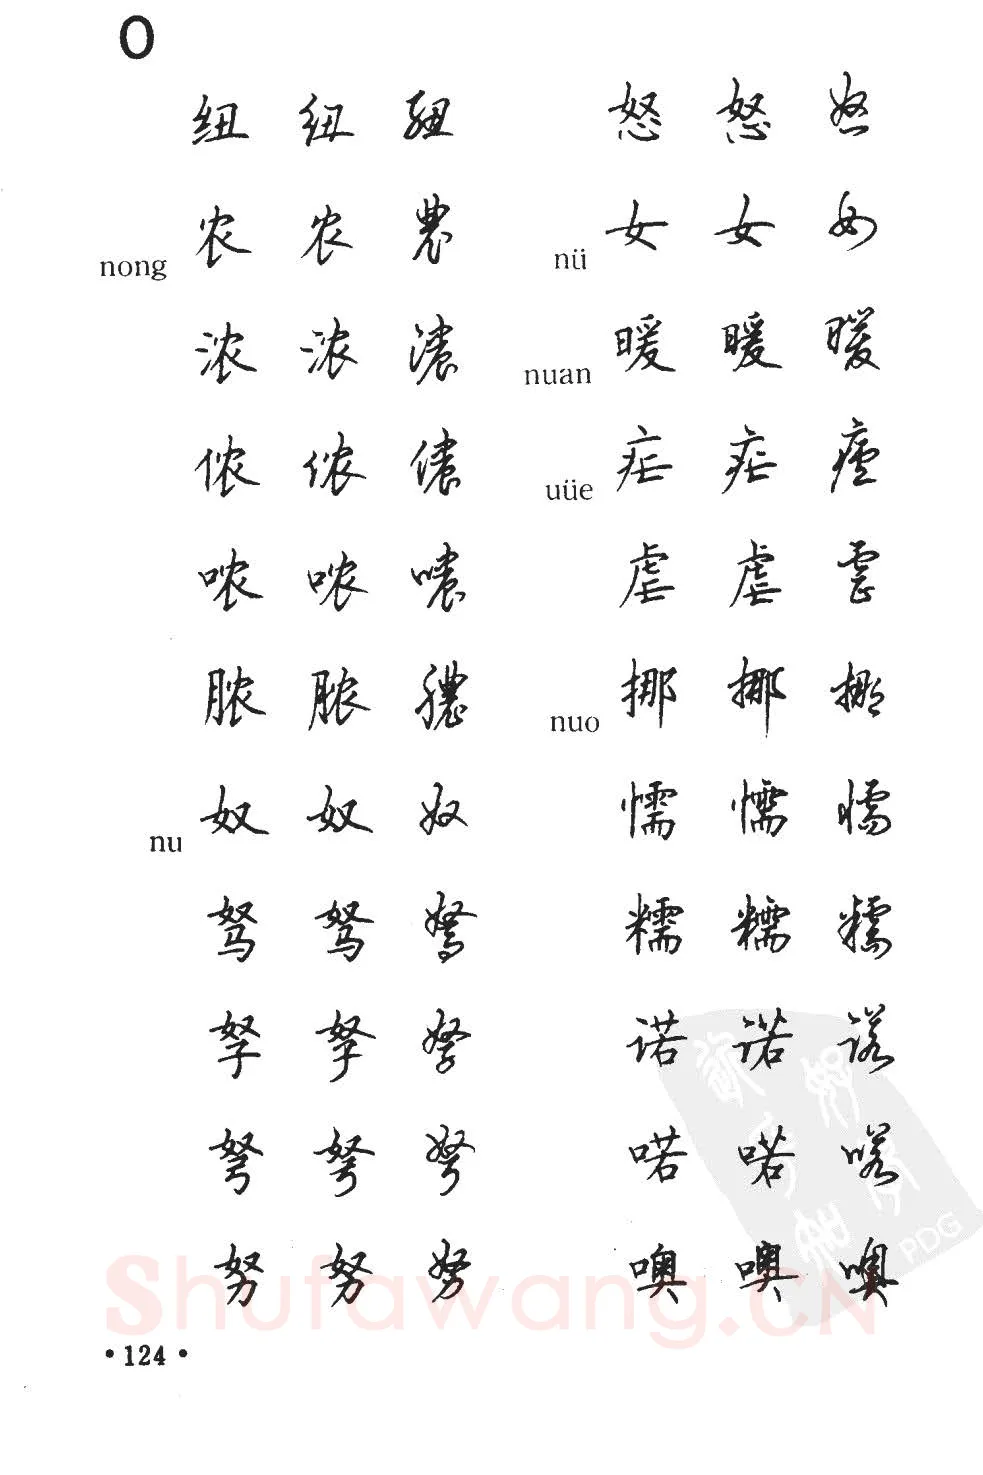 O
纽 纽 紐
农 农 農
nong
浓 浓 濃
侬 侬 儂
哝 哝 噥
脓 脓 膿
奴 奴 奴
nu
驽 驽 駑
孥 孥 孥
弩 弩 弩
努 努 努
怒 怒 怒
女 女 女
nü
暖 暖 暖
nuan
疟 疟 瘧
uüe
虐 虐 虐
挪 挪 挪
nuo
懦 懦 懦
糯 糯 糯
诺 诺 諾
喏 喏 喏
噢 噢 噢
Shufawang.CN
PDG
·124·